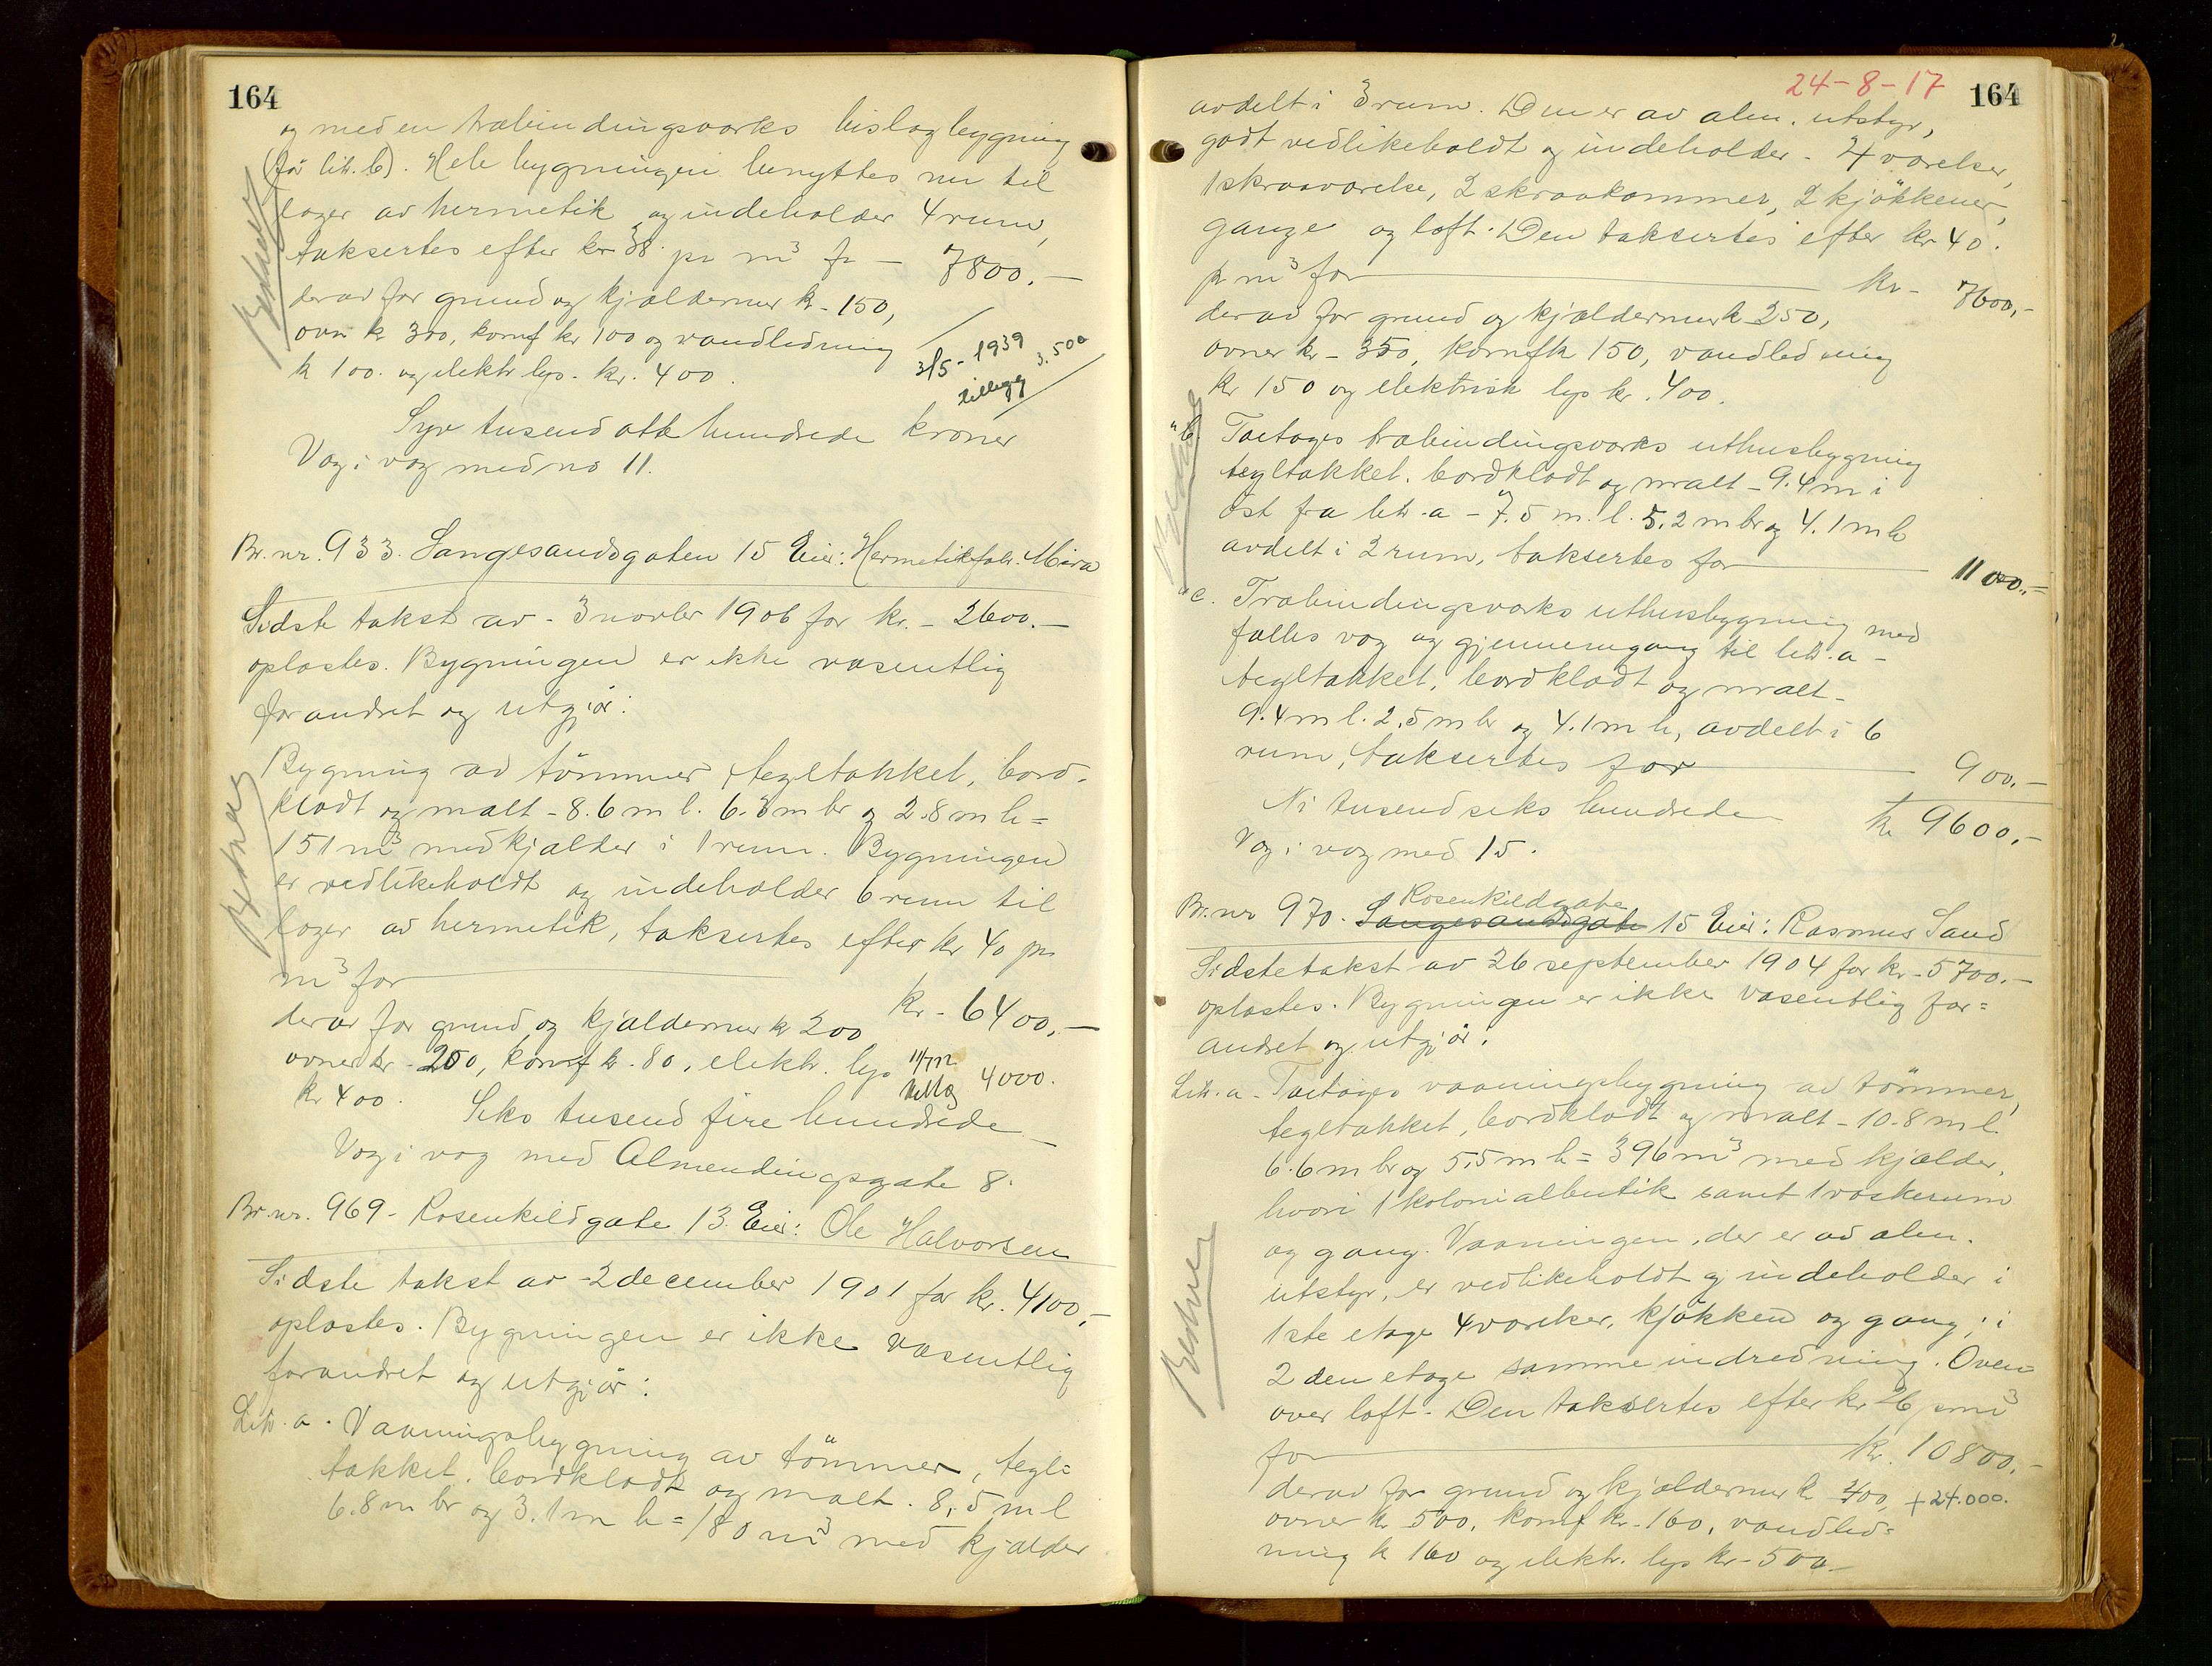 164
og med en træbindingsværks bislagbygning
(før litr. b). Hele bygningen benyttes nu til
lager av hermetik og indeholder 4 rum,
taksertes efter kr 38 pr m³ fr — 7800.—
derav for grund og kjældermur kr - 150,
ovn kr 300, komf kr 100 og vandledning
kr 100. og elektr lys - kr. 400.
3/5 - 1939
tillegg 3.500
Syv tusend otte hundrede kroner
Væg i væg med no 11.
Br. nr. 933. Langesandsgaten 15 Eier: Hermetikfabr. Mira
Sidste takst av - 3 novbr 1906 for kr. - 2600.—
oplæstes. Bygningen er ikke væsentlig
forandret og utgjør:
Bygning av tömmer, tegltækket, bord-
klædt og malt - 8.6 m l. 6.3 m br og 2.8 m h =
151 m³ med kjælder i 1 rum. Bygningen
er vedlikeholdt og indeholder 6 rum til
lager av hermetik, taksertes efter kr 40 pr
m³ for
kr - 6400.—
derav for grund og kjældermur kr 200
ovner kr - 200, komf kr. 80, elektr. lys
kr 400.
4000.
Seks tusend fire hundrede —
Væg i væg med Almendingsgate 8.
Br. nr. 969 - Rosenkildgate 13. Eier: Ole Halvorsen
Sidste takst av - 2 december 1901 for kr. 4100,-
oplæstes. Bygningen er ikke væsentlig
forandret og utgjør:
Litr. a. Vaaningsbygning av tömmer, tegl=
tækket, bordklædt og malt. 8,5 m l
6.8 m br og 3.1 m h = 180 m³ med kjælder
24-8-17
164
avdelt i 3 rum. Den er av alm. utstyr,
godt vedlikeholdt og indeholder - 4 værelser,
1 skraaværelse, 2 skraakammer, 2 kjökkener,
gange og loft. Den taksertes efter kr 40.
pr m³ for kr - 7600,-
derav for grund og kjældermur kr 250,
ovner kr - 350, komf kr 150, vandledning
kr 150 og elektrisk lys kr. 400.
" b. Toetages træbindingsværks uthusbygning
tegltækket, bordklædt og malt - 9.4 m i
öst fra litr. a - 7.5 m. l. 5.2 m br og 4.1 m h
avdelt i 2 rum, taksertes for 1100.-
" c. Træbindingsværks uthusbygning med
fælles væg og gjennemgang til litr. a -
tegltækket, bordklædt og malt -
9.4 m l. 2,5 m br og 4.1 m h, avdelt i 6
rum, taksertes for 900.-
Ni tusend seks hundrede kr 9600,-
Væg i væg med 15.
Rosenkildgate
Br. nr 970. Langesandsgate 15 Eier: Rasmus Sand
Sidste takst av 26 september 1904 for kr - 5700.-
oplæstes. Bygningen er ikke væsentlig for=
andret og utgjør:
Litr. a - Toetages vaaningsbygning av tömmer,
tegltækket, bordklædt og malt - 10.8 m l.
6.6 m br og 5,5 m h = 396 m³ med kjælder,
hvori 1 kolonialbutik samt 1 vaskerum
og gang. Vaaningen, der er av alm.
utstyr, er vedlikeholdt og indeholder i
1ste etage 4 værelser, kjökken og gang; i
2 den etage samme indredning. Oven=
over loft. Den taksertes efter kr 26 pr m³
for kr. 10800.-
derav for grund og kjældermur kr 400, + 24.000.
ovner kr 500, komf kr. 160, vandled=
ning kr 160 og elektr. lys kr - 500 -